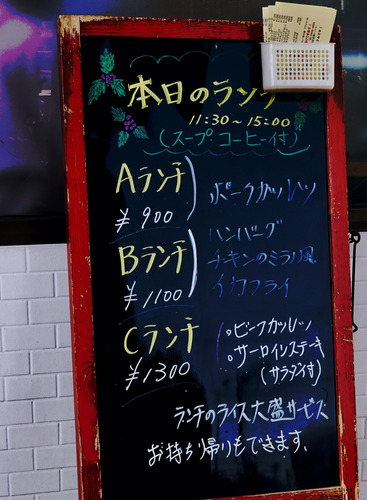 本日のランチ
11:30~15:00
(スープ.コーヒー付)
Aランチ
¥900
ポークカツレツ
Bランチ
¥1100
ハンバーグ
チキンのミラノ風
イカフライ
Cランチ
¥1300
○ビーフカツレツ
○サーロインステーキ
(サラダ付)
ランチのライス大盛サービス
お持ち帰りもできます、